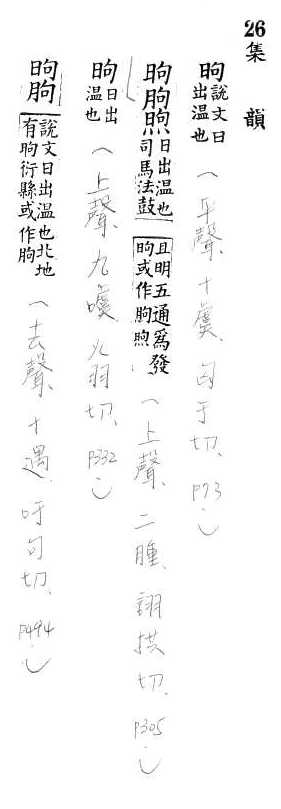 26 集韻
昫 說文日出溫也 (平聲、十虞、匈于切、P73.)
昫朐煦 日出溫也司馬法鼓旦明五通爲發昫或作朐煦 (上聲、二腫、詡拱切、P305.)
昫 日出溫也 (上聲、九噳、火羽切、P332)
昫朐 說文日出溫也北地有昫衍縣或作朐 (去聲、十遇、吁句切、P494.)